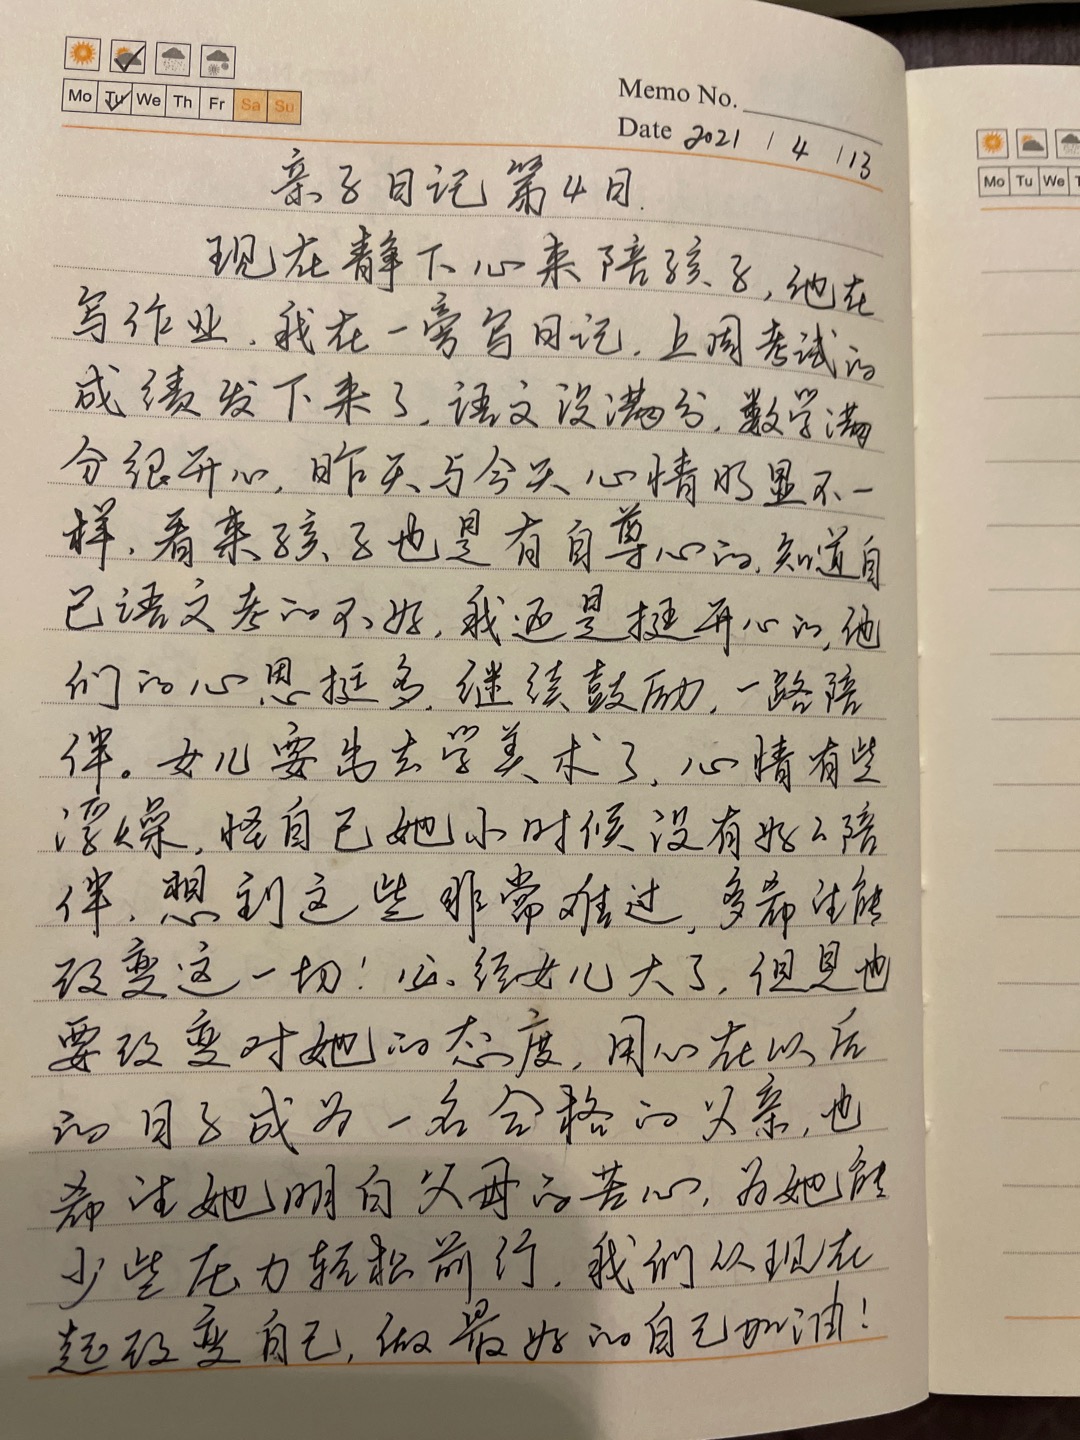 Mo Tu We Th Fr Sa Su
Memo No.
Date 2021 / 4 / 13
亲子日记第4日.
现在静下心来陪孩子,他在
写作业,我在一旁写日记,上周考试的
成绩发下来了,语文没满分,数学满
分很开心,昨天与今天心情明显不一
样,看来孩子也是有自尊心的,知道自
己语文考的不好,我还是挺开心的,他
们的心思挺多,继续鼓励,一路陪
伴。女儿要出去学美术了,心情有些
浮燥,怪自己她小时候没有好好陪
伴,想到这些非常难过,多希望能
改变这一切!必经女儿大了,但是也
要改变对她的态度,用心在以后
的日子成为一名合格的父亲,也
希望她明白父母的苦心,为她能
少些压力轻松前行,我们从现在
起改变自己,做最好的自己加油!
Mo Tu We T